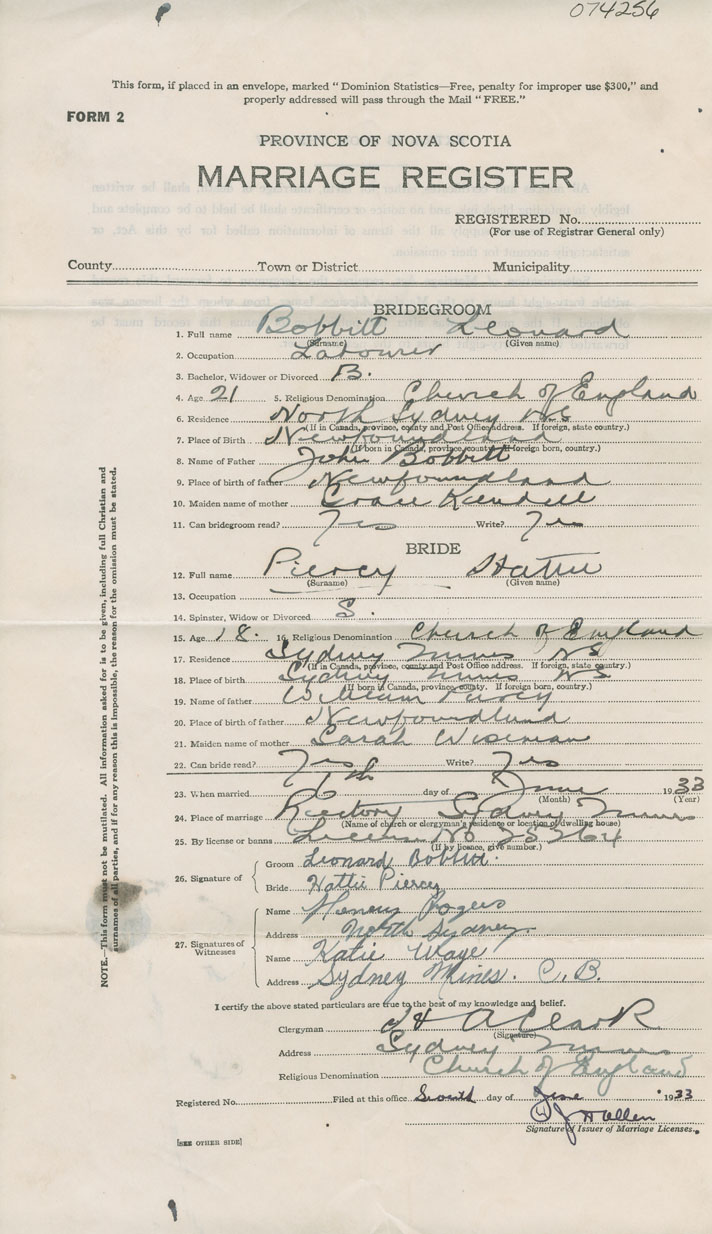 074256
This form, if placed in an envelope, marked "Dominion Statistics—Free, penalty for improper use $300," and
properly addressed will pass through the Mail "FREE."
FORM 2
PROVINCE OF NOVA SCOTIA
MARRIAGE REGISTER
REGISTERED No.
(For use of Registrar General only)
County Town or District Municipality
BRIDEGROOM
1. Full name Bobbitt Leonard
(Surname) (Given name)
2. Occupation Labourer
3. Bachelor, Widower or Divorced B.
4. Age 21 5. Religious Denomination Church of England
6. Residence North Sydney NS
(If in Canada, province, county and Post Office address. If foreign, state country.)
7. Place of Birth Newfoundland
(If born in Canada, province, county. If foreign born, country.)
8. Name of Father John Bobbitt
9. Place of birth of father Newfoundland
10. Maiden name of mother Grace Kendell
11. Can bridegroom read? Yes Write? Yes
BRIDE
12. Full name Piercy Hattie
(Surname) (Given name)
13. Occupation
14. Spinster, Widow or Divorced S.
15. Age 18. 16. Religious Denomination Church of England
17. Residence Sydney Mines NS
(If in Canada, province, county and Post Office address. If foreign, state country.)
18. Place of birth Sydney Mines NS
(If born in Canada, province, county. If foreign born, country.)
19. Name of father William Piercy
20. Place of birth of father Newfoundland
21. Maiden name of mother Sarah Wiseman
22. Can bride read? Yes Write? Yes
23. When married 6th day of June 1933
(Month) (Year)
24. Place of marriage Rectory Sydney Mines
(Name of church or clergyman's residence or location of dwelling house)
25. By license or banns License No 25264
(If by licence, give number.)
26. Signature of
Groom Leonard Bobbitt.
Bride Hattie Piercy
27. Signatures of Witnesses
Name Henery Rogers
Address North Sydney
Name Katie Waye
Address Sydney Mines. C.B.
I certify the above stated particulars are true to the best of my knowledge and belief.
Clergyman A Clark
(Signature)
Address Sydney Mines
Religious Denomination Church of England
Registered No. Filed at this office day of June 1933
Signature of Issuer of Marriage Licenses.
[SEE OTHER SIDE]
NOTE.—This form must not be mutilated. All information asked for is to be given, including full Christian and
surnames of all parties, and if for any reason this is impossible, the reason for the omission must be stated.